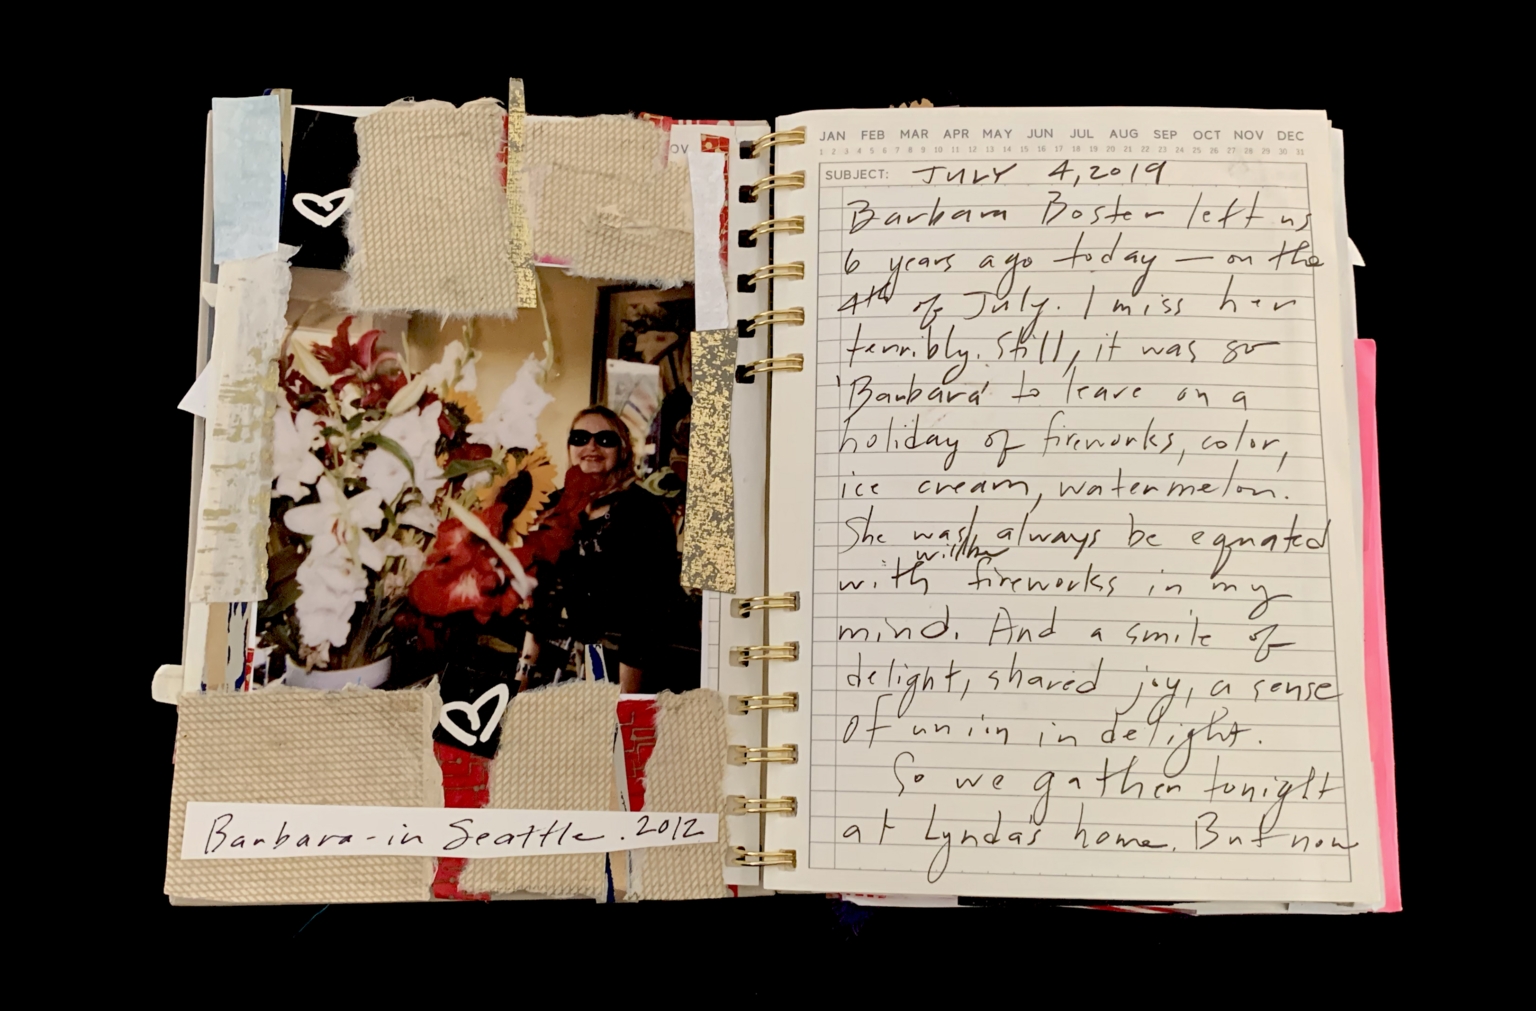 OV
Barbara - in Seattle. 2012
JAN FEB MAR APR MAY JUN JUL AUG SEP OCT NOV DEC
1 2 3 4 5 6 7 8 9 10 11 12 13 14 15 16 17 18 19 20 21 22 23 24 25 26 27 28 29 30 31
SUBJECT: JULY 4, 2019
Barbara Boster left us
6 years ago today — on the
4th of July. I miss her
terribly. Still, it was so
'Barbara' to leave on a
holiday of fireworks, color,
ice cream, watermelon.
She was/will always be equated
with fireworks in my
mind. And a smile of
delight, shared joy, a sense
of union in delight.
So we gather tonight
at Lynda's home. But now